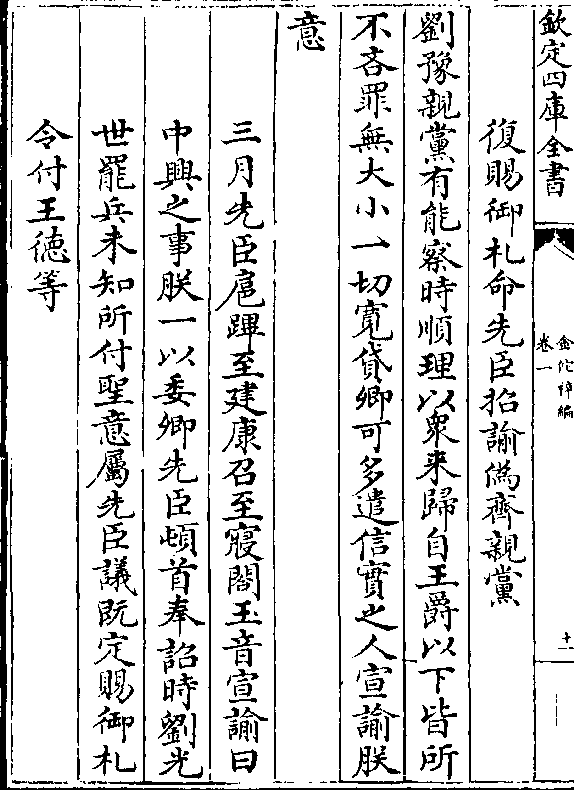 欽定四庫全書
金佗稡編
卷一
十一
復賜御札命先臣招諭偽齊親黨
劉豫親黨有能察時順理以衆来歸自王爵以下皆所
不吝罪無大小一切寛貸卿可多遣信實之人宣諭朕
意
三月先臣扈蹕至建康召至寢閣玉音宣諭曰
中興之事朕一以委卿先臣頓首奉詔時劉光
世罷兵未知所付聖意屬先臣議既定賜御札
令付王徳等